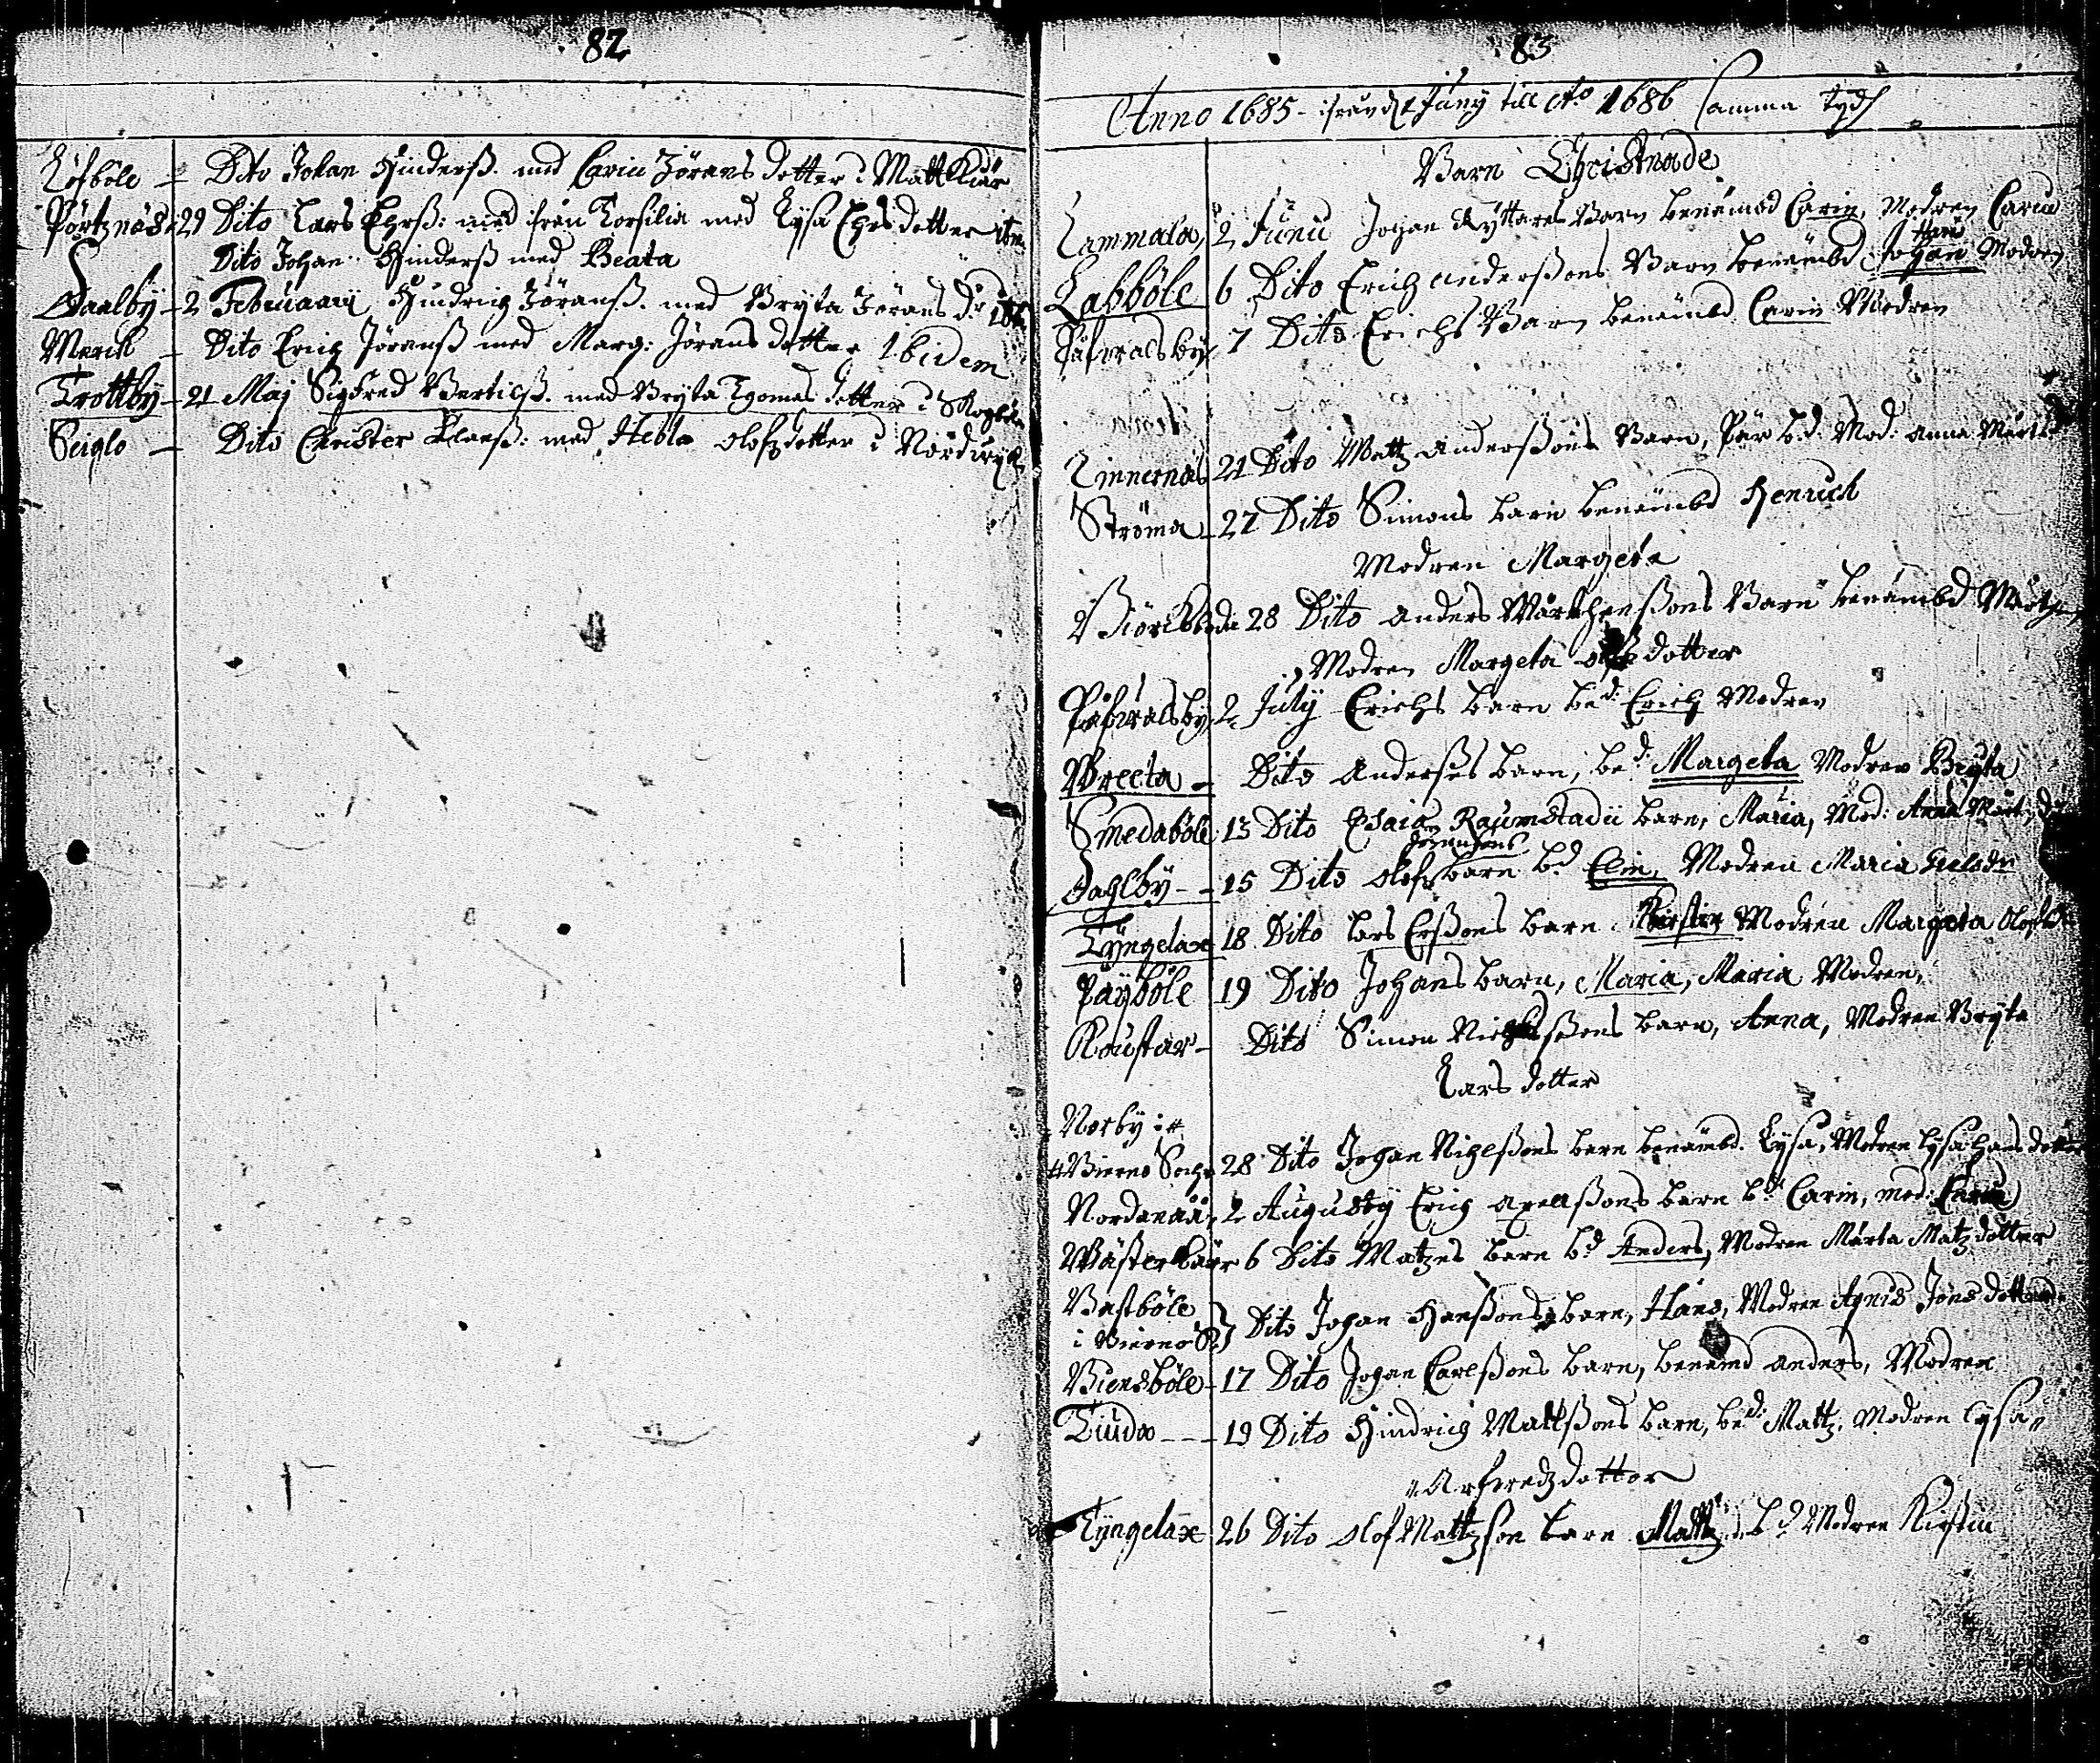 82
Löfböle – Dito Johan Hinderß. med Carin Jörans dotter i Mattkiär
Pörtznäs 29 Dito Lars Ehrß: med från Torsilia med Lysa Ehrsdotter ibm.
Dito Johan Hinderß med Beata
Daalby – 2 Februarij Hindrich Jöranß. med Bryta Jörans dr ibm
Merik – Dito Erich Jöranß med Marg: Jörans dotter Ibidem
Trottby – 21 Maj Sigfred Bertilß. med Bryta Thomas dotter i Skogböle
Seiglo – Dito Christer Klaeß: med Hebla Olofz dotter i Nordwyk
83
Anno 1685 – ifrån d. 1 Juny till Ao 1686 samma Tydh
Barn Christnade
Lammala, 2 Junii Johan Ryttares Barn benämbd Carin, Modren Carin
Labböle 6 Dito Erich anderßons Barn benämbd Johan Modren
Påfvalsby 7 Dito Erichs Barn benämbd Carin Modren
Linnernäs 21 Dito Mattz Anderßons Barn, Pär b.d. Mod: Anna
Ströma – 27 Dito Simons barn benämbd Henrich
Modren Margeta
Biörkboda 28 Dito Anders Mårthenßons Barn benämbd Mårthen
, Modren Margeta dotter
Påfvalsby, 2 July Erichs barn bed: Erich Modren
Wreeta – Dito Anderßes barn, bed: Margeta Modren Bryta
Smedaböle 13 Dito Esaiæ Raumstadii barn, Maria, Mod: Anna Mårt. dr
Dahlby – – 15 Dito Olofs barn bd Elin, Modren Maria
Tyngelax 18 Dito Lars Erßons barn Kirstin Modren Margeta Olofzdr
Päyböle 19 Dito Johans barn, Maria, Maria Modren,
Röustar – Dito Simon Nichelsßons barn, Anna, Modren Bryta
Lars dotter
Norby i #
# Bierno Sochn 28 Dito Johan Nichlßons barn benämbd. Lysa, Modren Lysa Hans dotter
Nordanåå, 2 Augusty Erich Axellßons barn bd Carin, mod: Carin
Wästerkärr 6 Dito Matzes barn bd Anders, Modren Märta Matz dotter
Bastböle
i Bierno S. } Dito Johan Hanßons barn, Hans, Modren Agnis Jöns dotter
Biensböle – 17 Dito Johan Carlßons barn, benämd Anders, Modren
Tiuda – – – 19 Dito Hindrich Mattßons barn, bed: Mattz, Modren Lysa //
// Arfvedz dotter
Tyngelax 26 Dito Olof Mattzson barn Mattz bd Modren Kirstin